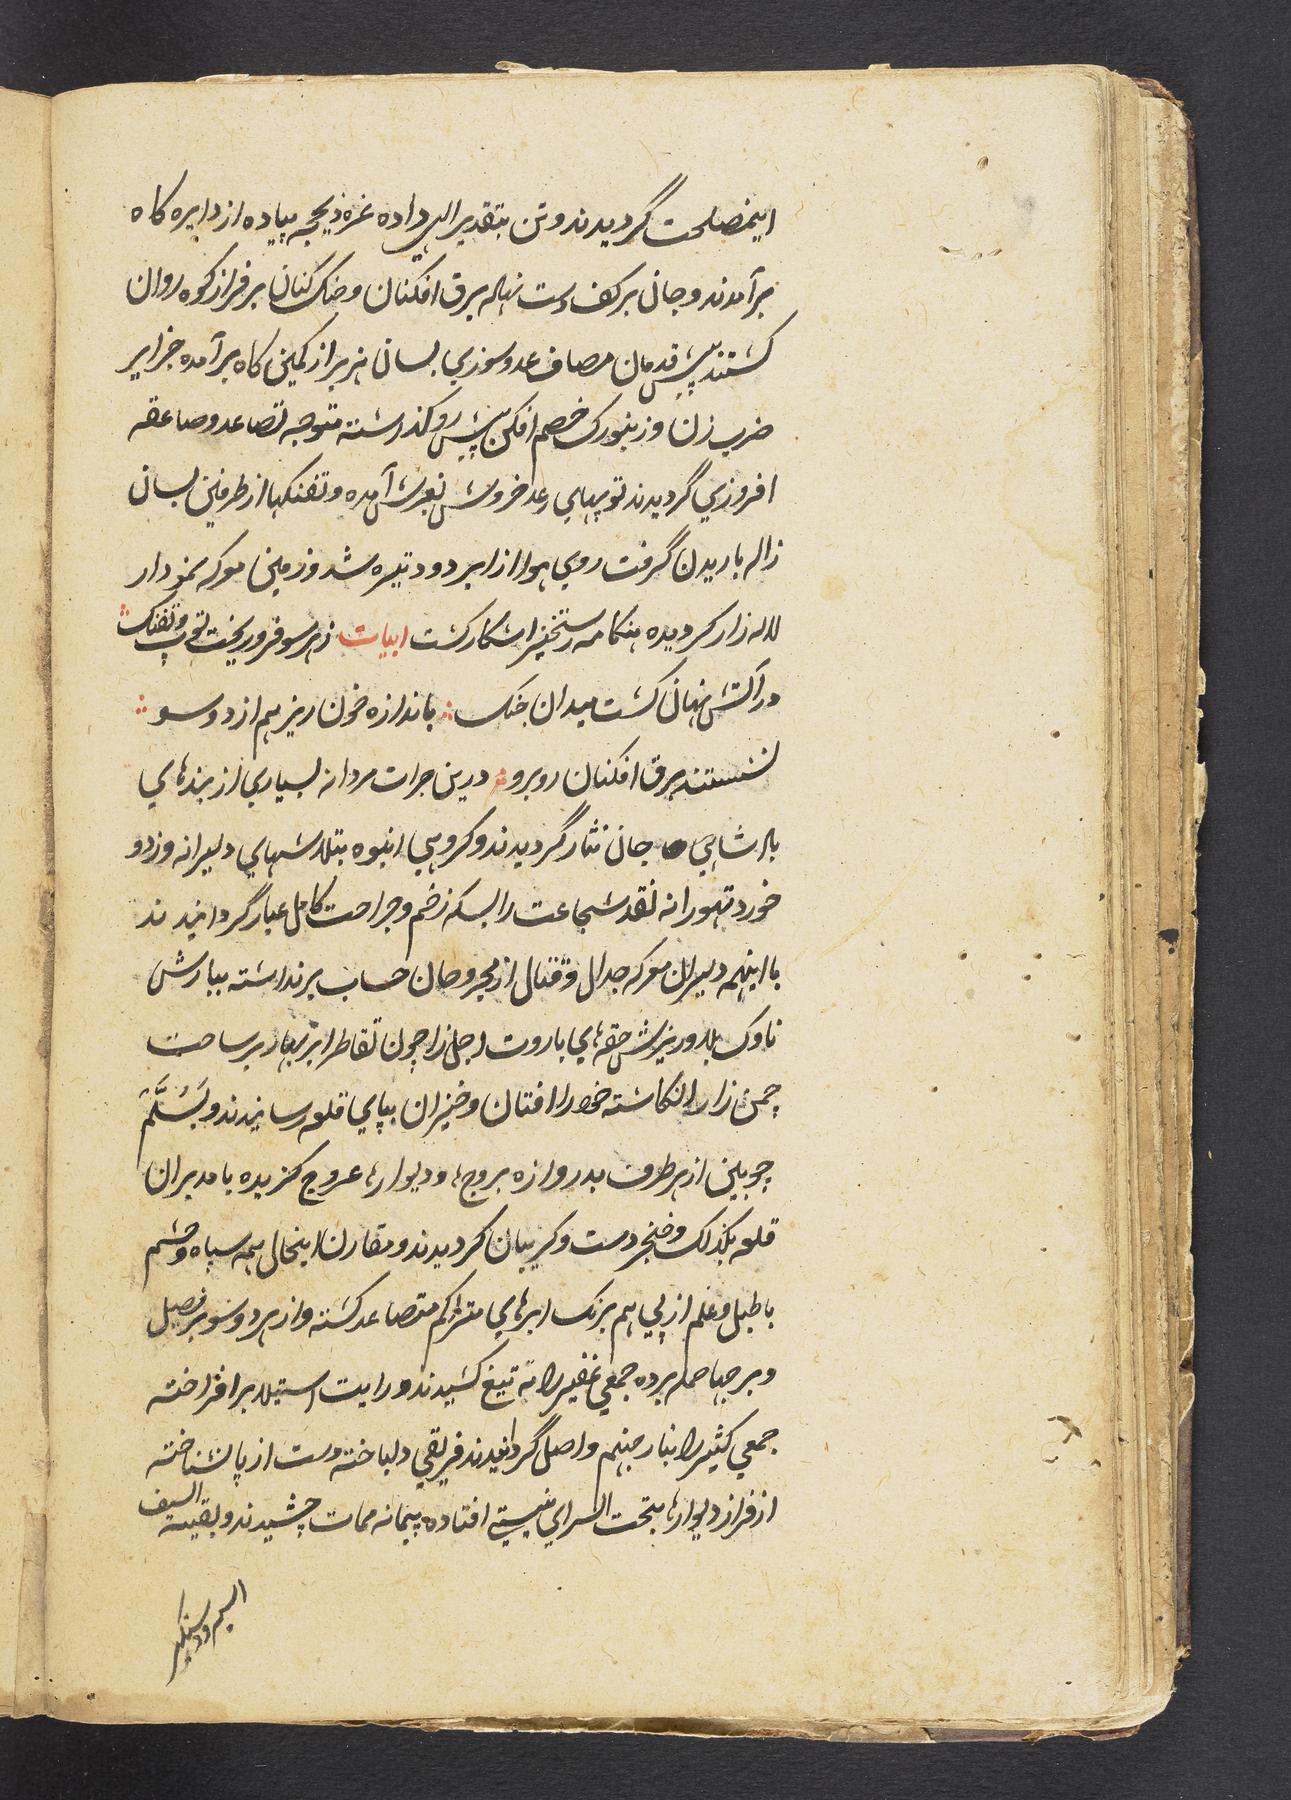 اینمصلحت گردیدند و تن بتقدیر الهی داده غره ذیحجه پیاده از دایره کاه
برآمدند و جان برکف دست نهاله برق افکنان و جنک کنان بر فراز کوه روان
کشتند پیش قدمان مصاف عدو سوزی بسان هزبر از کمین کاه برآمده جزایر
ضرب زن و زنبورک خصم افکن پیش رو کذاشته متوجه تصاعد و صاعقه
افروزی گردیدند توپهای رعد خروش بغرش آمده و تفنکها از طرفین بسان
ژاله باریدن گرفت روی هوا از ابر دود تیره شد و زمین معرکه نمودار
لاله زار کردیده هنکامه رستخیز اشکار کشت ابیات ز هر سو فرو ریخت توپ و تفنک
در آتش نهان کشت میدان جنک باندازه خون ریز هم از دو سو
نشستند برق افکنان روبرو درین جرات مردانه بسیاری از بندهای
شاهی جان نثار گردیدند و کروهی انبوه بتلاشهای دلیرانه و زد و
خورد تهورانه نقد شجاعت را بسکه زخم و جراحت کامل عیار گردانیدند
با اینهمه دلیران معرکه جدال و قتال از مجروحان حساب برنداشته ببارش
ناوک بلا و ریزش حقه های باروت اجل زا چون تقاطر ابر بهار بر ساحت
چمن زار انکاشته خود را افتان و خیزان بپای قلعه رسانیدند و بسلم
چوبین از هر طرف بدروازه بروج ها و دیوارها عروج کزیده با مدبران
قلعه بکذلک و خنجر دست و کریبان کردیدند و مقارن اینحال همه سپاه و حشم
با طبل و علم از پی هم برنک ابرهای متراکم متصاعد کشته و از هر دو سو بر فصیل
و برجها حمله برده جمعی غفیر را ته تیغ کشیدند و رایت استیلا برافراخته
جمعی کثیر را بنار جهنم واصل گردانیدند فریقی دلباخته دست از پا نشناخته
از فراز دیوارها بتحت السرای نیستی افتاده پیمانه ممات چشیدند و بقیته السیف